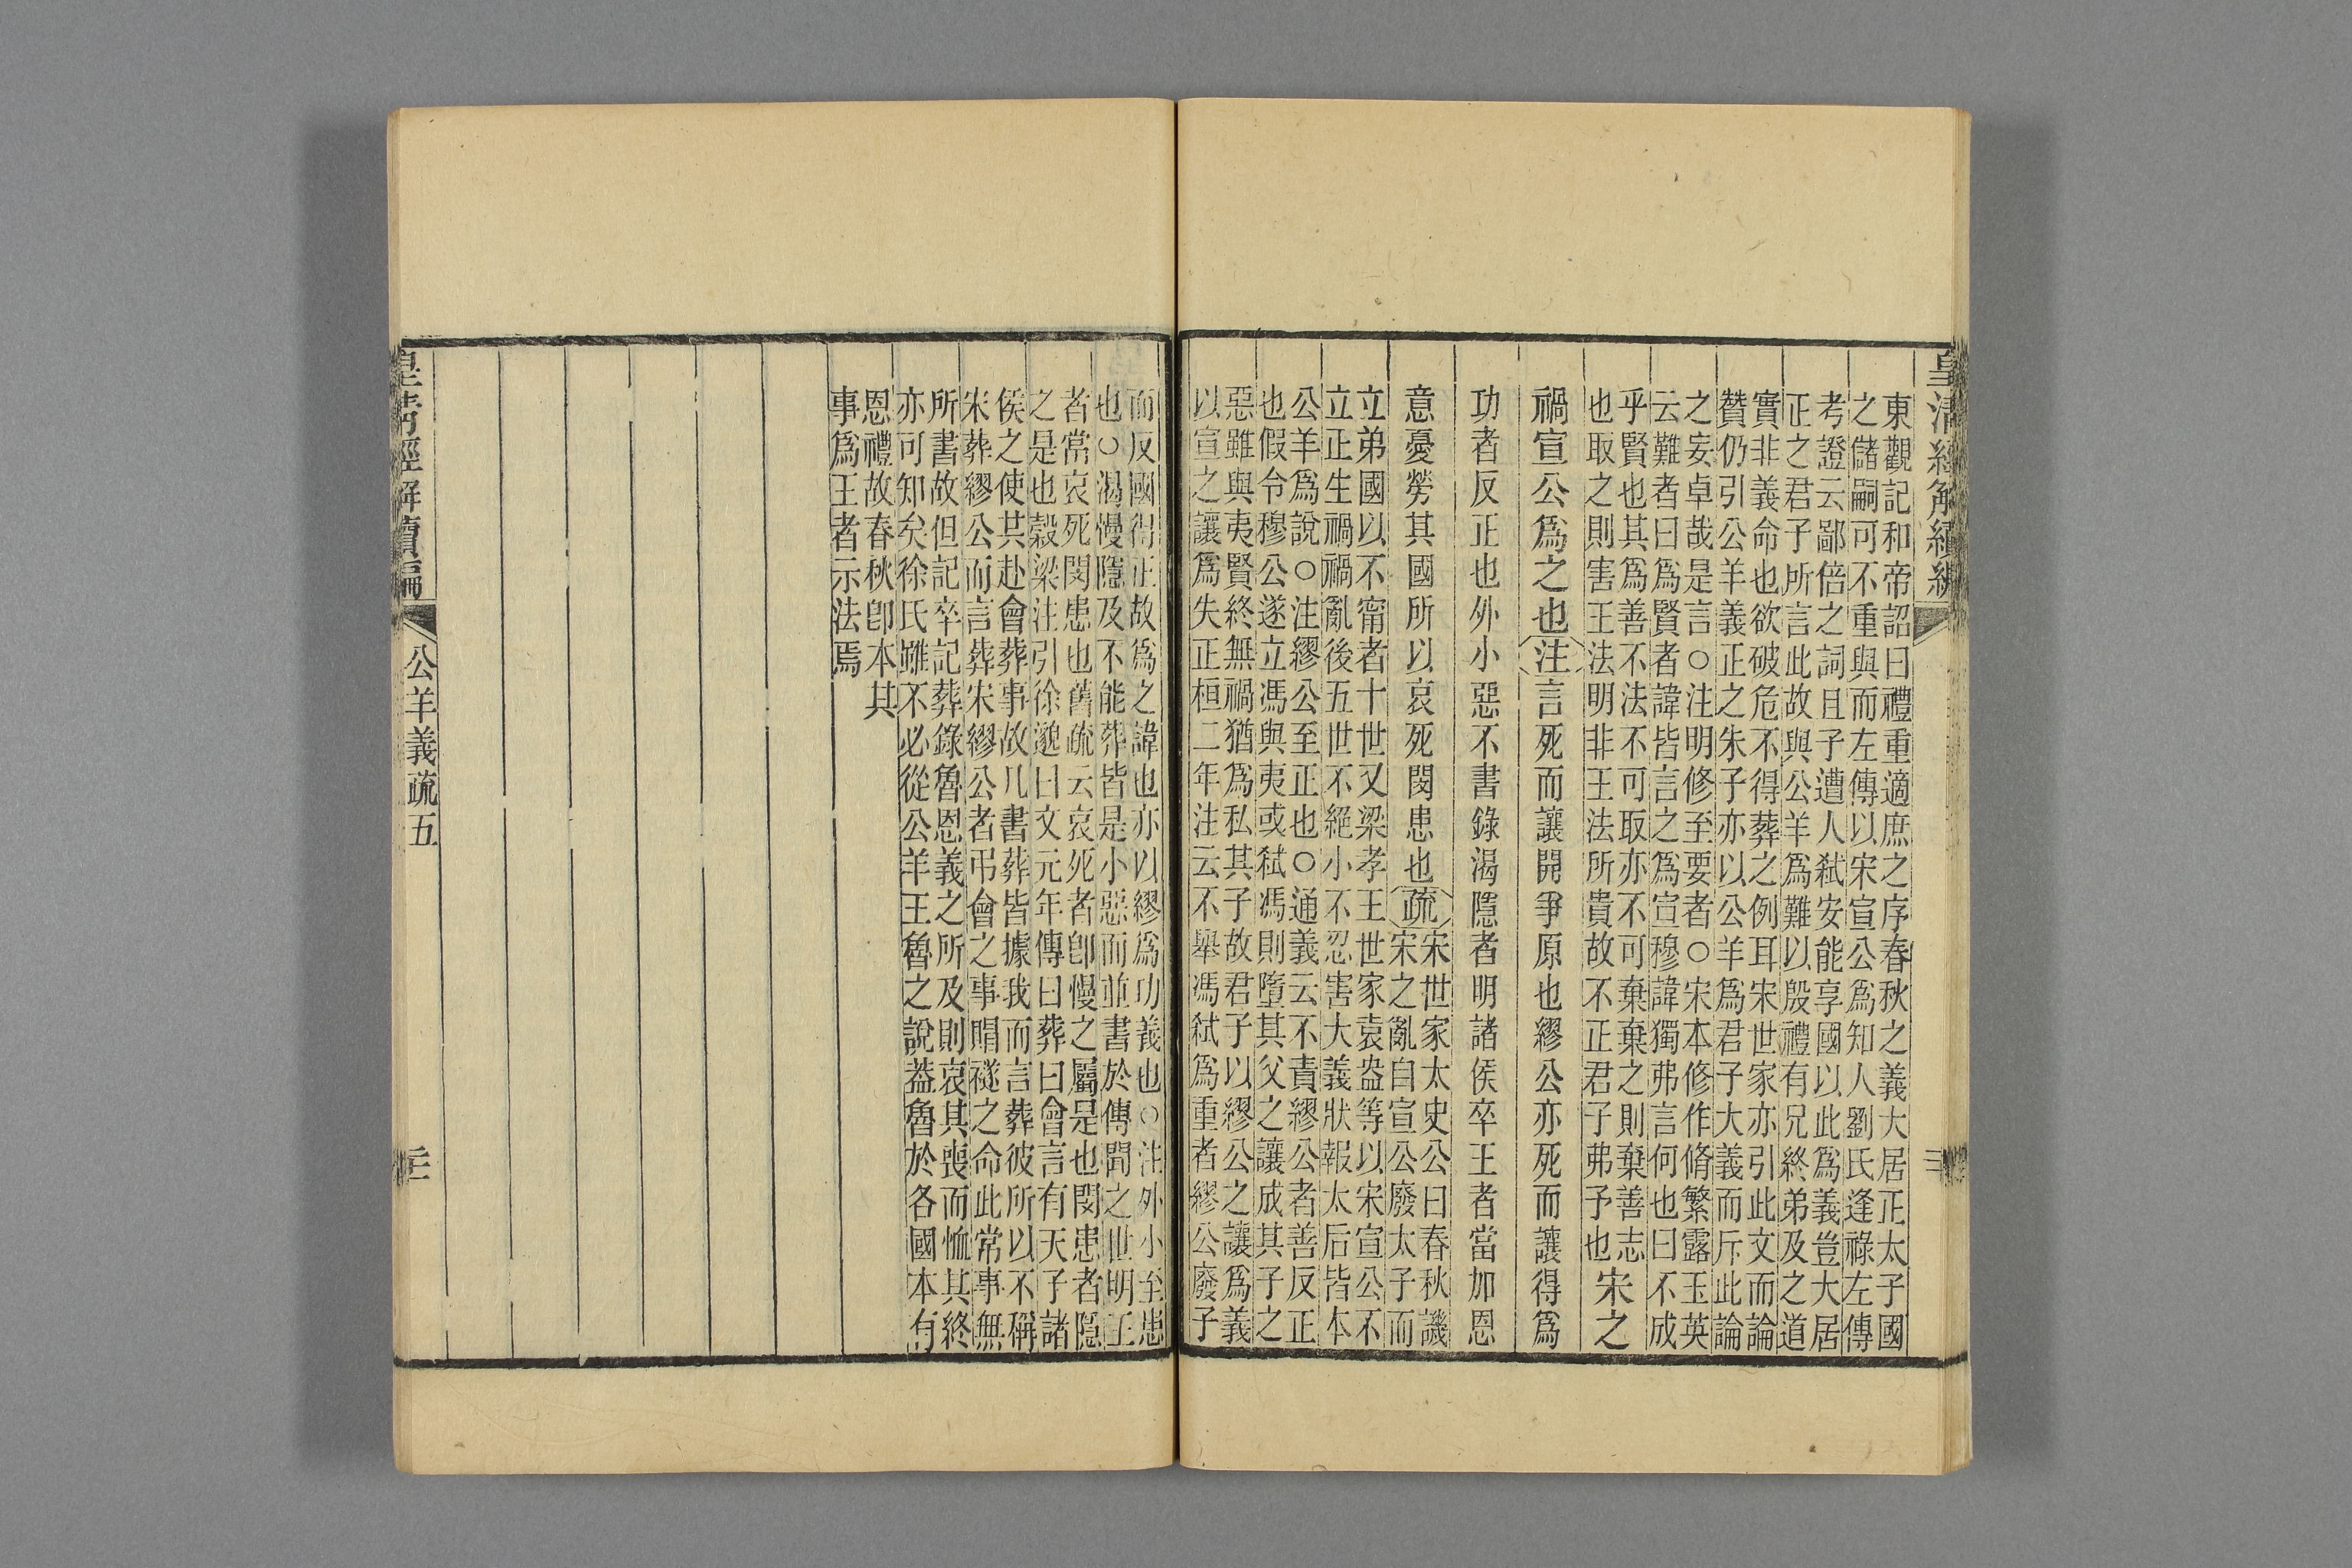 皇清經解續編
東觀記和帝詔曰禮重適庶之序春秋之義大居正太子國
之儲嗣可不重與而左傳以宋宣公爲知人劉氏逢祿左傳
考證云鄙倍之詞且子遭人弑安能享國以此爲義豈大居
正之君子所言此故與公羊爲難以殷禮有兄終弟及之道
實非義命也欲破危不得葬之例耳宋世家亦引此文而論
贊仍引公羊義正之朱子亦以公羊爲君子大義而斥此論
之妄卓哉是言○注明修至要者○宋本修作脩繁露玉英
云難者曰爲賢者諱皆言之爲宣穆諱獨弗言何也曰不成
乎賢也其爲善不法不可取亦不可棄棄之則棄善志
也取之則害王法明非王法所貴故不正君子弗予也宋之
禍宣公爲之也注言死而讓開爭原也繆公亦死而讓得爲
功者反正也外小惡不書錄渴隱者明諸侯卒王者當加恩
意憂勞其國所以哀死閔患也疏
宋世家太史公曰春秋譏
宋之亂自宣公廢太子而
立弟國以不甯者十世又梁孝王世家袁盎等以宋宣公不
立正生禍禍亂後五世不絕小不忍害大義狀報太后皆本
公羊爲說○注繆公至正也○通義云不責繆公者善反正
也假令穆公遂立馮與夷或弑馮則墮其父之讓成其子之
惡雖與夷賢終無禍猶爲私其子故君子以繆公之讓爲義
以宣之讓爲失正桓二年注云不舉馮弑爲重者繆公廢子
而反國得正故爲之諱也亦以繆爲功義也○注外小至患
也○渴慢隱及不能葬皆是小惡而並書於傳聞之世明王
者當哀死閔患也舊疏云哀死者卽慢之屬是也閔患者隱
之是也穀梁注引徐邈曰文元年傳曰葬曰會言有天子諸
侯之使共赴會葬事故凡書葬皆據我而言葬彼所以不稱
宋葬繆公而言葬宋繆公者弔會之事賵襚之命此常事無
所書故但記卒記葬錄魯恩義之所及則哀其喪而恤其終
亦可知矣徐氏雖不必從公羊王魯之說葢魯於各國本有
恩禮故春秋卽本其
事爲王者示法焉
皇清經解續編
公羊義疏五